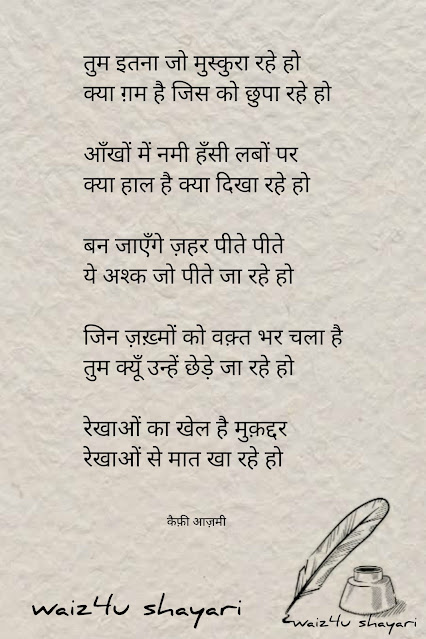 तुम इतना जो मुस्कुरा रहे हो
क्या ग़म है जिस को छुपा रहे हो
आँखों में नमी हँसी लबों पर
क्या हाल है क्या दिखा रहे हो
बन जाएँगे ज़हर पीते पीते
ये अश्क जो पीते जा रहे हो
जिन ज़ख़्मों को वक़्त भर चला है
तुम क्यूँ उन्हें छेड़े जा रहे हो
रेखाओं का खेल है मुक़द्दर
रेखाओं से मात खा रहे हो
कैफ़ी आज़मी
waiz4u shayari
waiz4u shayari